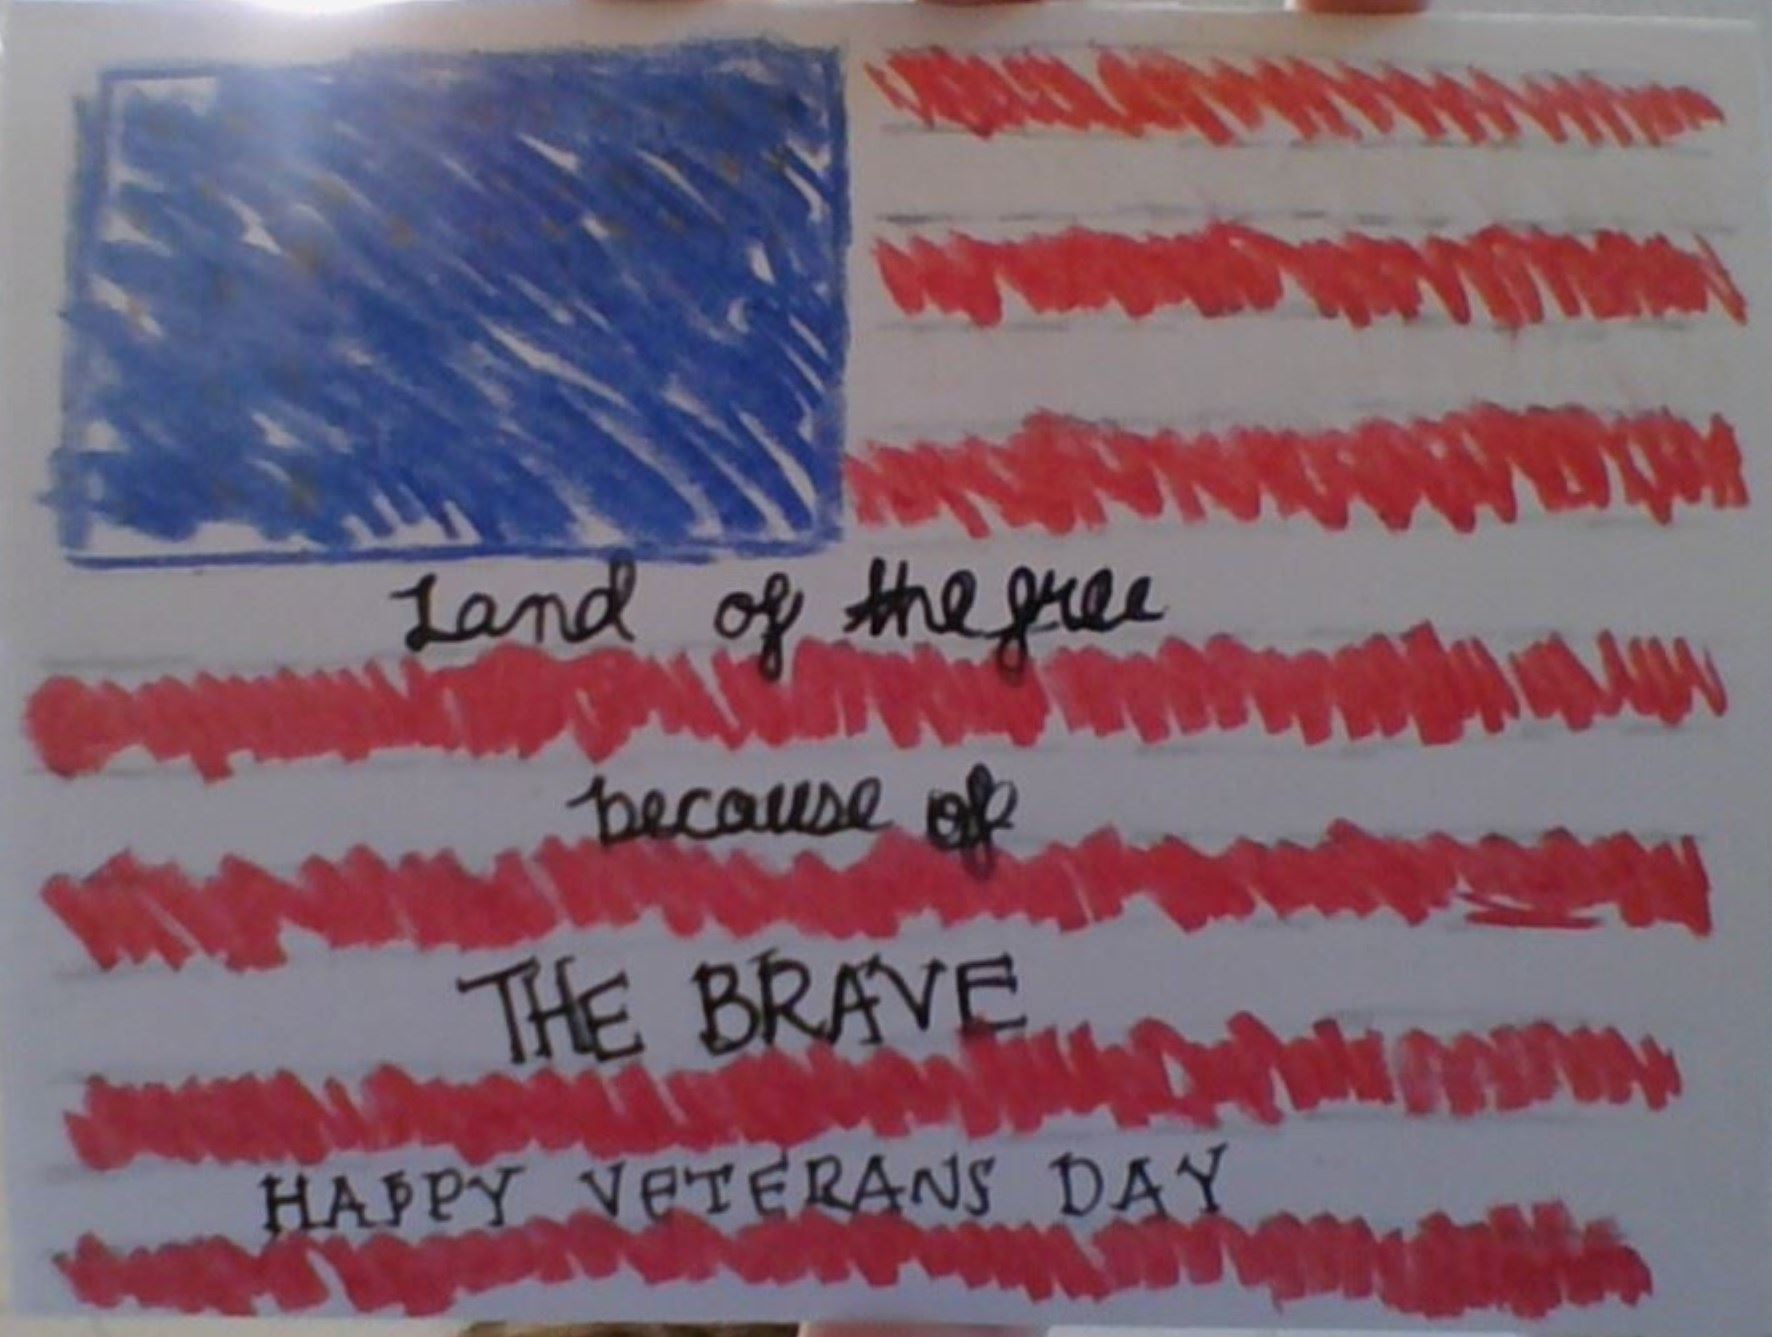 Land of the free
because of
THE BRAVE
HAPPY VETERANS DAY